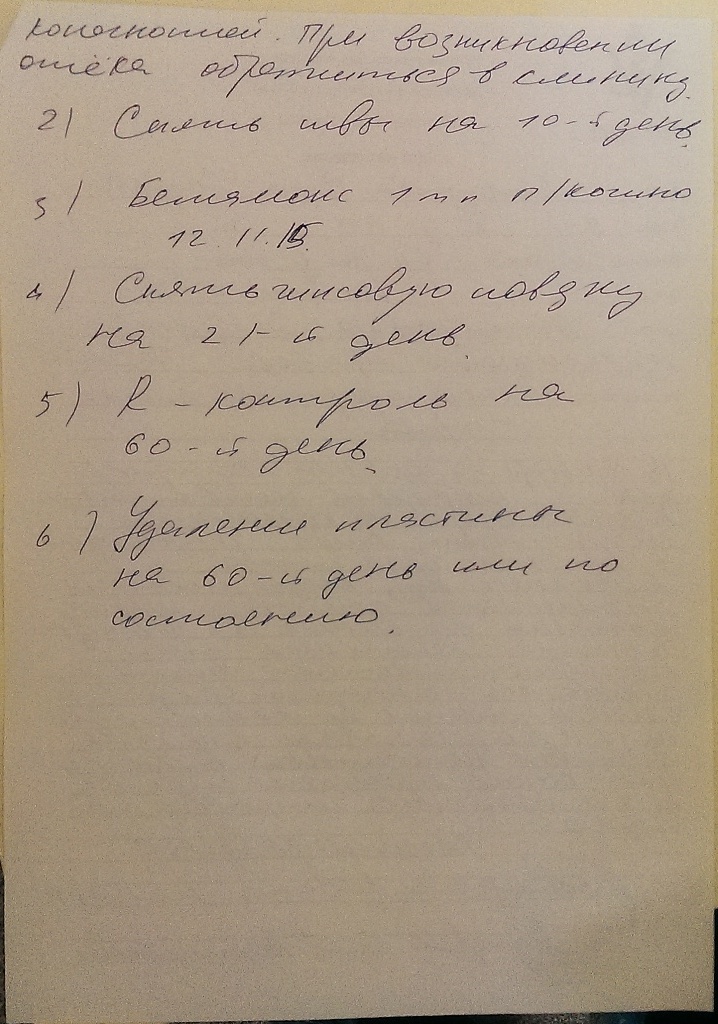 конечностей. При возникновении
отёка обратиться в клинику.
2) Снять швы на 10-й день.
3) Бетамокс 1 мл п/кожно
12.11.15.
4) Снять гипсовую повязку
на 21-й день.
5) R-контроль на
60-й день.
6) Удаление пластины
на 60-й день или по
состоянию.